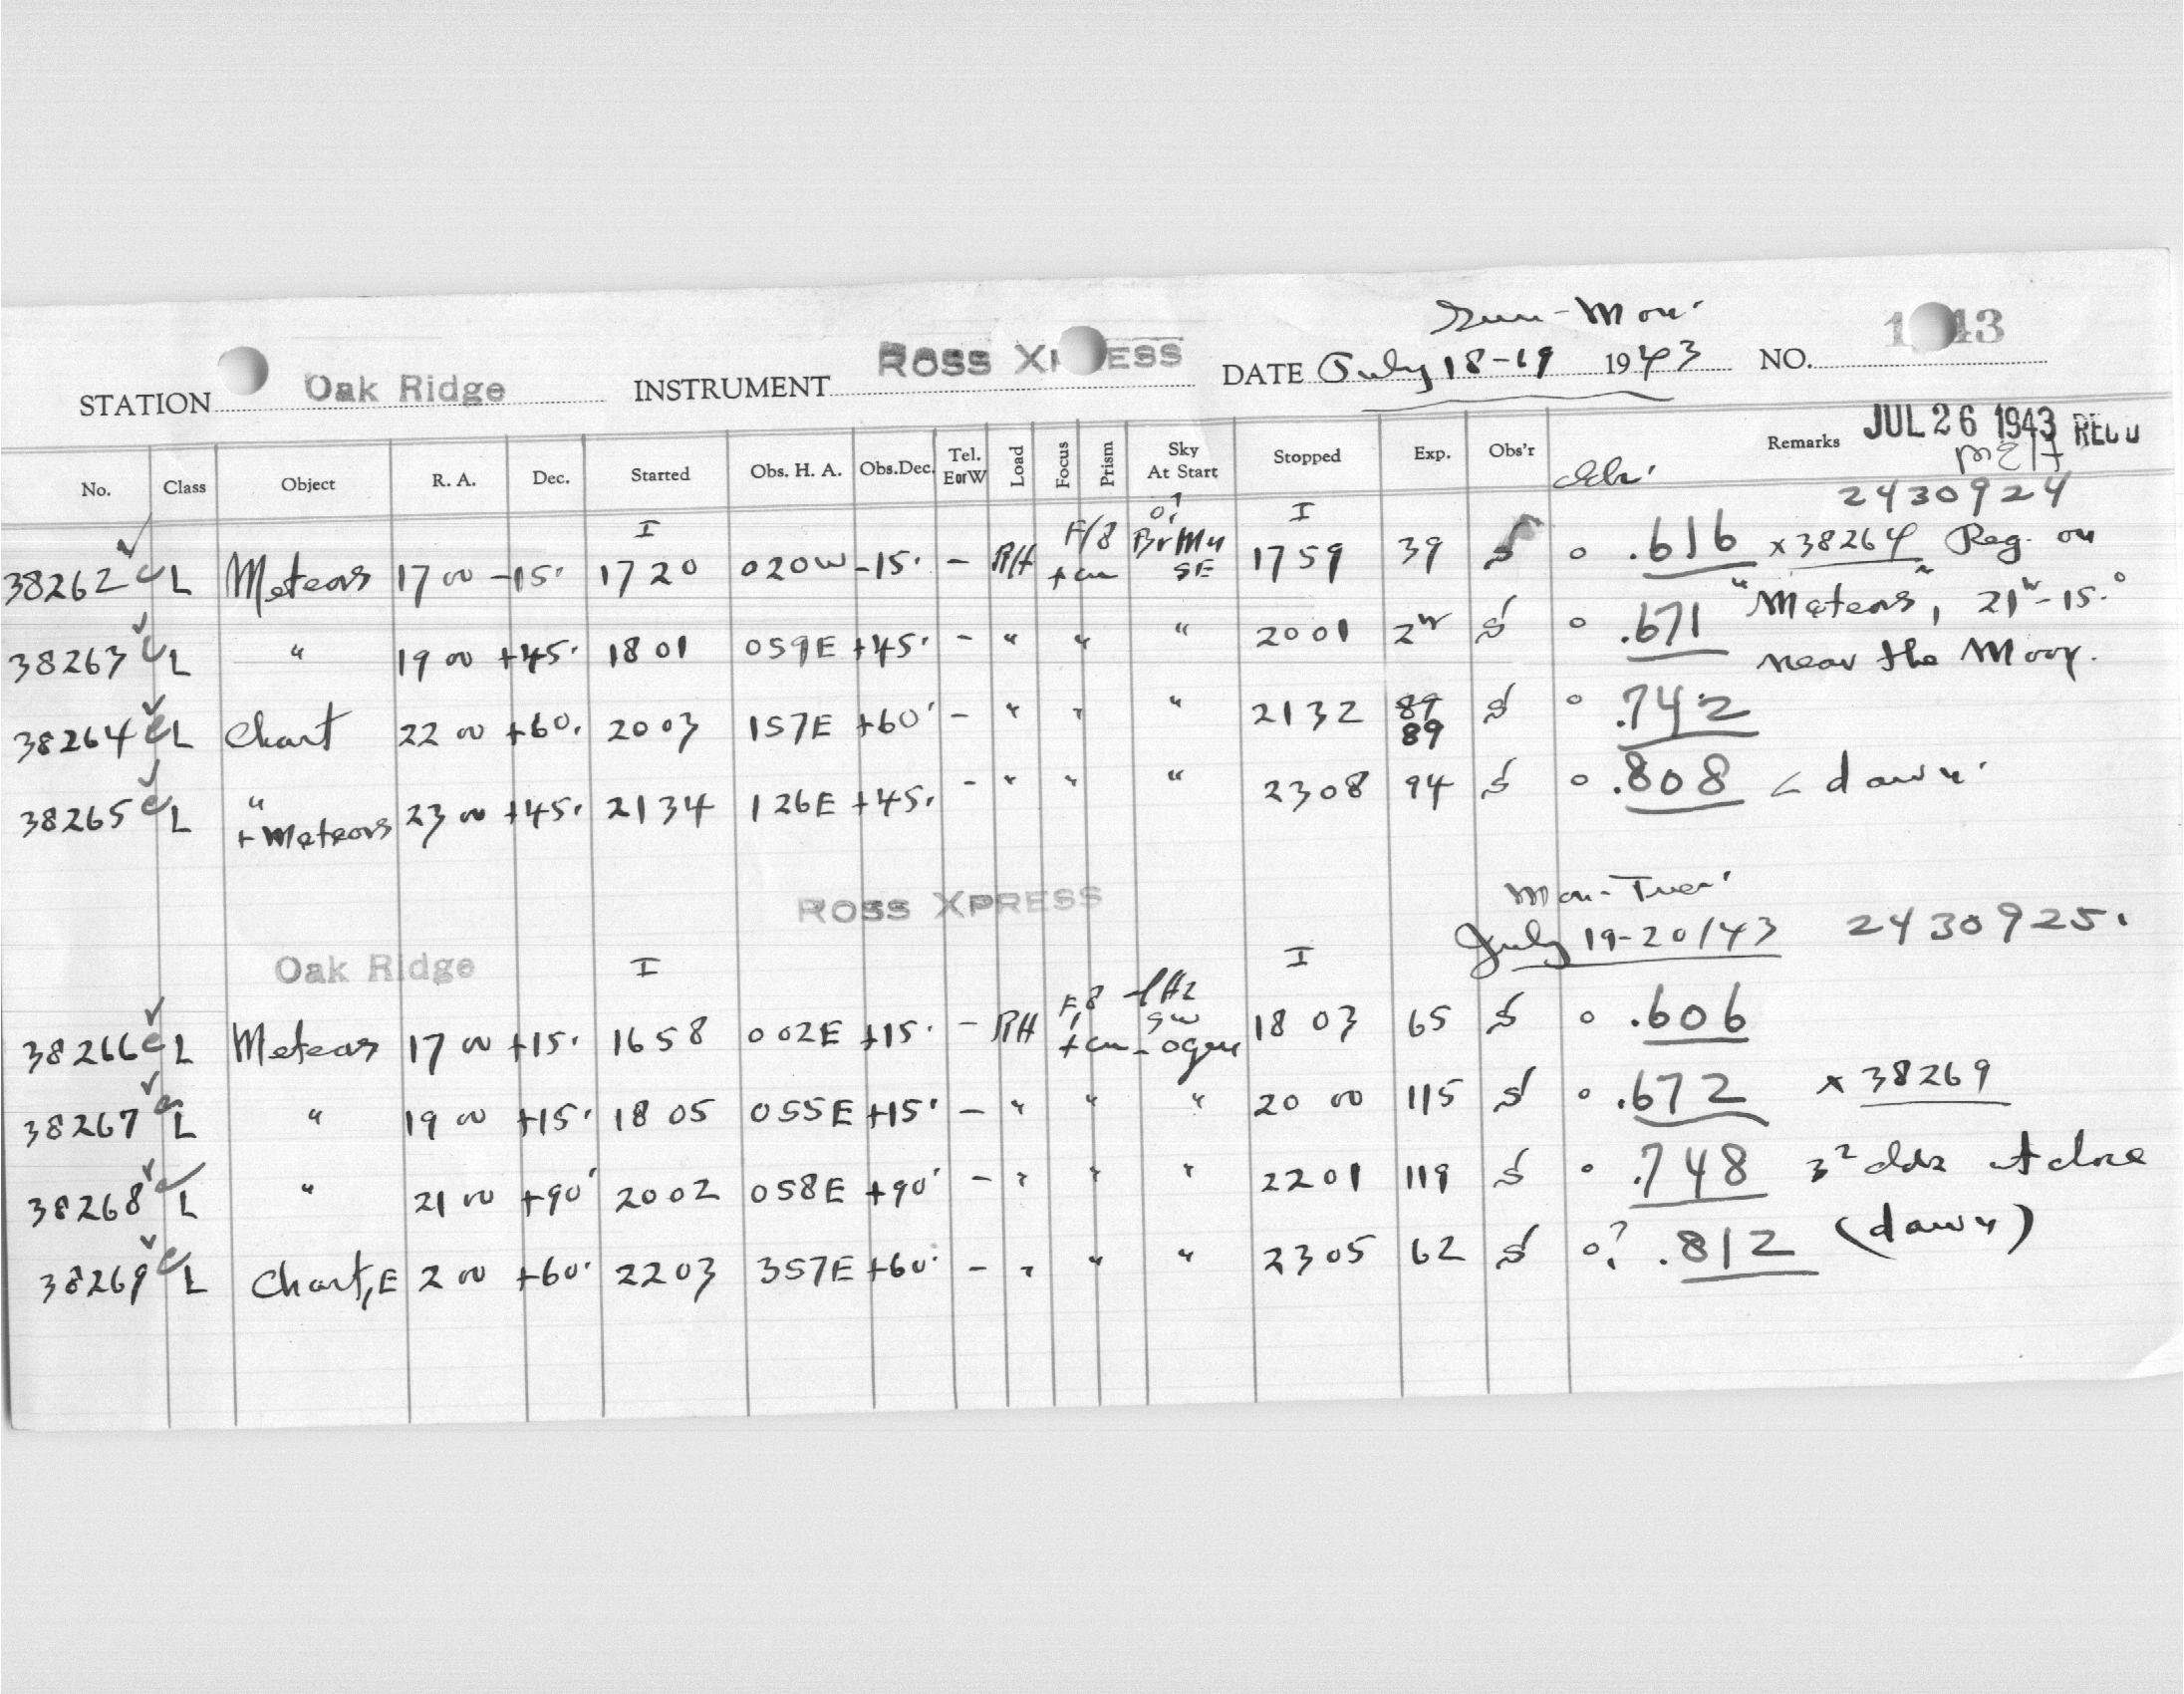 Sun-Mon.
STATION Oak Ridge INSTRUMENT ROSS X ESS DATE July 18-19 1943 NO. 1 43
JUL 26 1943 REC'D
No. Class Object R. A. Dec. Started Obs. H. A. Obs.Dec. Tel. EorW Load Focus Prism Sky At Start Stopped Exp. Obs'r Remarks
2430924
I I
38262 L Meteors 17 00 -15. 17 20 020W -15. - RH F/8 Br Mn SE 1759 39 S 0 .616 x 38264 Reg. on
38263 L " 19 00 +45. 18 01 059E +45. - " " " 2001 2hr S 0 .671 "Meteors", 21h -15.°
near the Moon.
38264 L Chart 22 00 +60. 2003 157E +60. - " " " 2132 89 89 S 0 .742
38265 L " + Meteors 23 00 +45. 2134 126E +45. - " " " 2308 94 S 0 .808 < dawn.
ROSS XPRESS Mon-Tues.
Oak Ridge July 19-20/43 2430925.
I I
38266 L Meteors 17 00 +15. 1658 002E +15. - RH F/8 SW 18 03 65 S 0 .606
38267 L " 19 00 +15. 18 05 055E +15. - " " " 20 00 115 S 0 .672 x 38269
38268 L " 21 00 +90. 2002 058E +90. - " " " 2201 119 S 0 .748 3² clds at close
38269 L Chart, E 2 00 +60. 2203 357E +60. - " " " 2305 62 S 0? .812 (dawn)